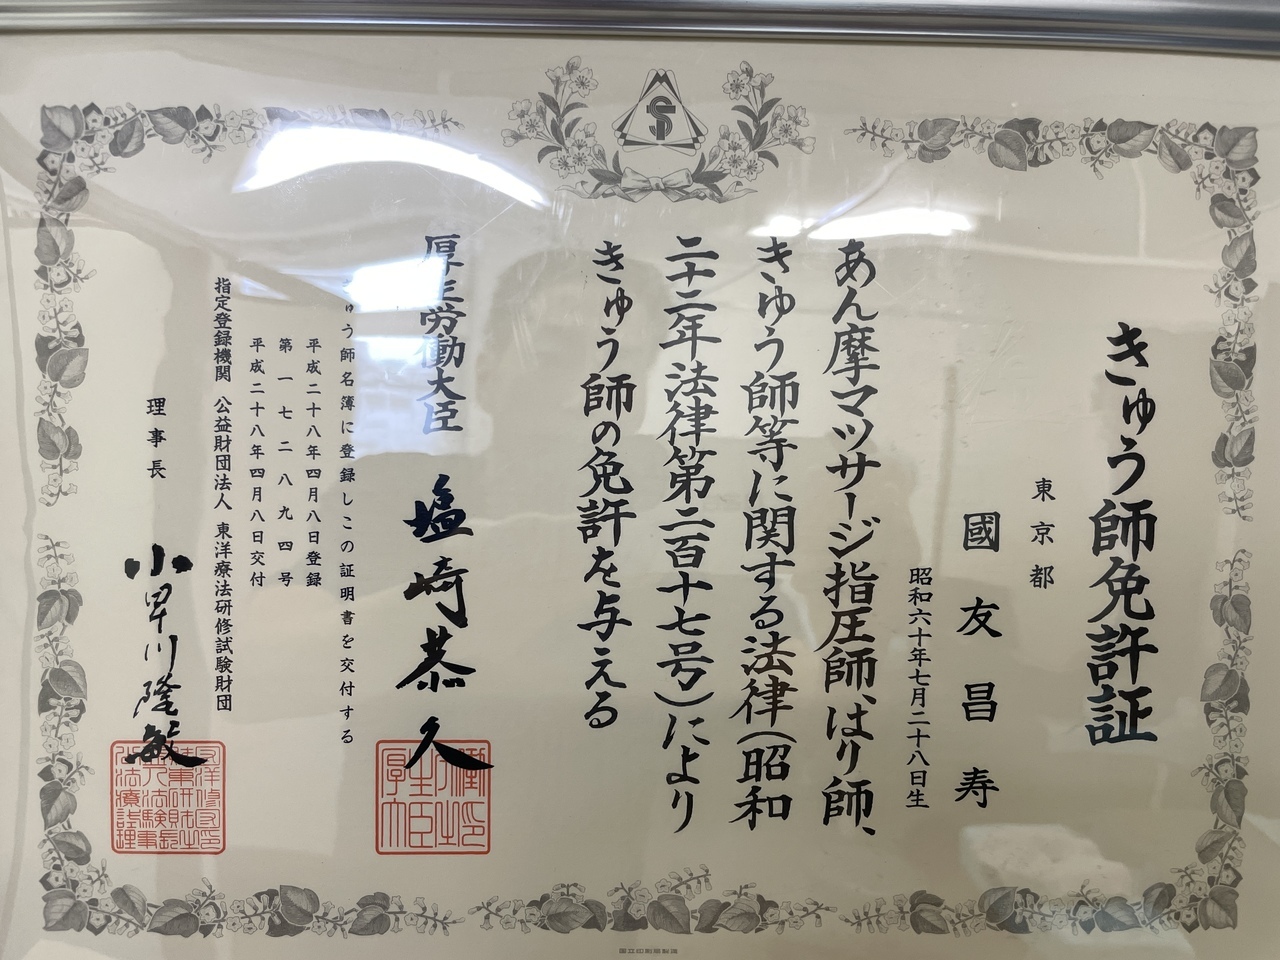 きゅう師免許証
東京都
國友昌寿
昭和六十年七月二十八日生
あん摩マツサージ指圧師、はり師、
きゆう師等に関する法律(昭和
二十二年法律第二百十七号)により
きゅう師の免許を与える
厚生労働大臣 塩崎恭久
ゅう師名簿に登録しこの証明書を交付する
平成二十八年四月八日登録
第一七二八九四号
平成二十八年四月八日交付
指定登録機関 公益財団法人 東洋療法研修試験財団
理事長 小早川隆敏
国立印刷局製造